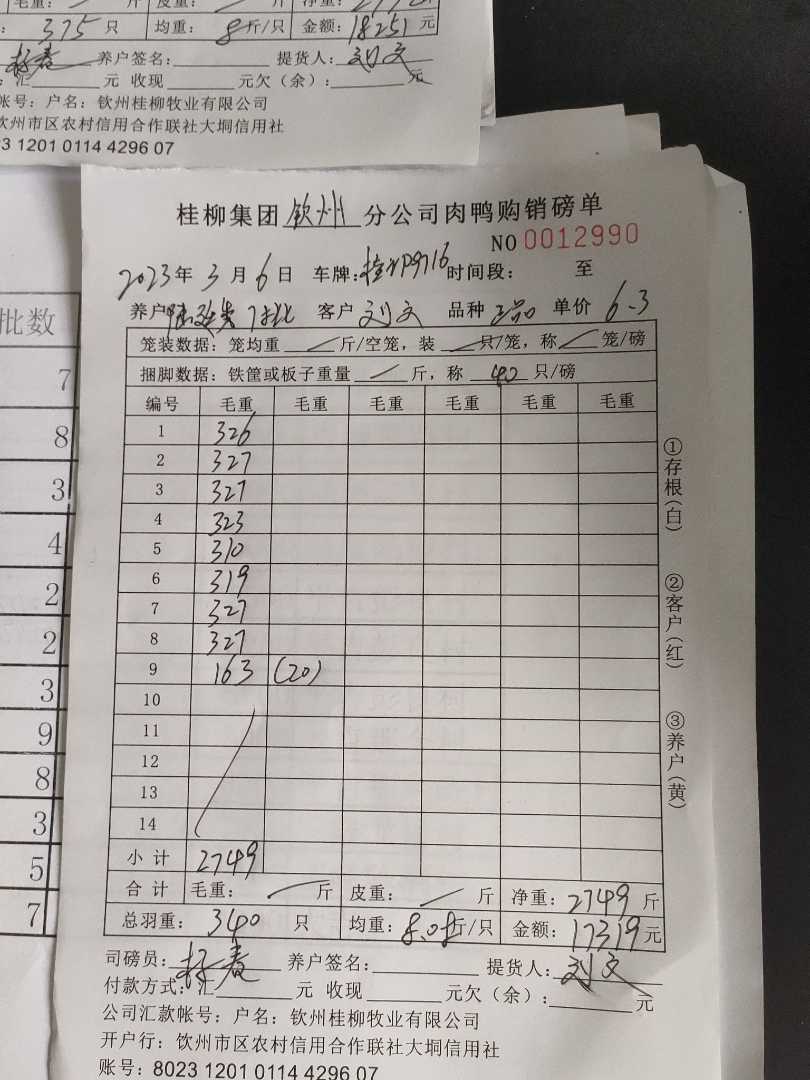 毛重： 斤 皮重： 斤 净重：
375 只 均重：8斤/只 金额：18251元
养户签名： 提货人：刘文
：汇 元 收现 元欠（余）： 元
帐号：户名：钦州桂柳牧业有限公司
钦州市区农村信用合作联社大垌信用社
23 1201 0114 4296 07
批数
7
8
3
4
2
2
3
9
8
3
5
7
桂柳集团钦州分公司肉鸭购销磅单
NO 0012990
2023年3月6日 车牌：桂 P9716 时间段： 至
养户 7批 客户 刘文 品种 正品 单价 6-3
笼装数据：笼均重 斤/空笼，装 只/笼，称 笼/磅
捆脚数据：铁筐或板子重量 斤，称 40 只/磅
编号 毛重 毛重 毛重 毛重 毛重 毛重
1 326
2 327
3 327
4 323
5 310
6 319
7 327
8 327
9 163 (20)
10
11
12
13
14
小计 2749
合计 毛重： 斤 皮重： 斤 净重：2749斤
总羽重：340 只 均重：8.08斤/只 金额：17319元
司磅员： 养户签名： 提货人：刘文
付款方式：汇 元 收现 元欠（余）： 元
公司汇款帐号：户名：钦州桂柳牧业有限公司
开户行：钦州市区农村信用合作联社大垌信用社
账号：8023 1201 0114 4296 07
①存根（白）
②客户（红）
③养户（黄）